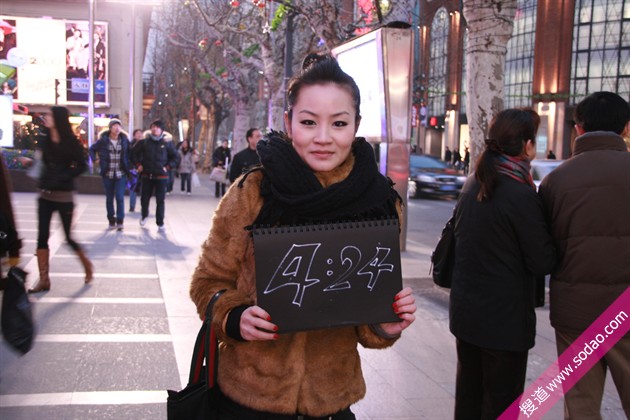 4:24
搜道www.sodao.com